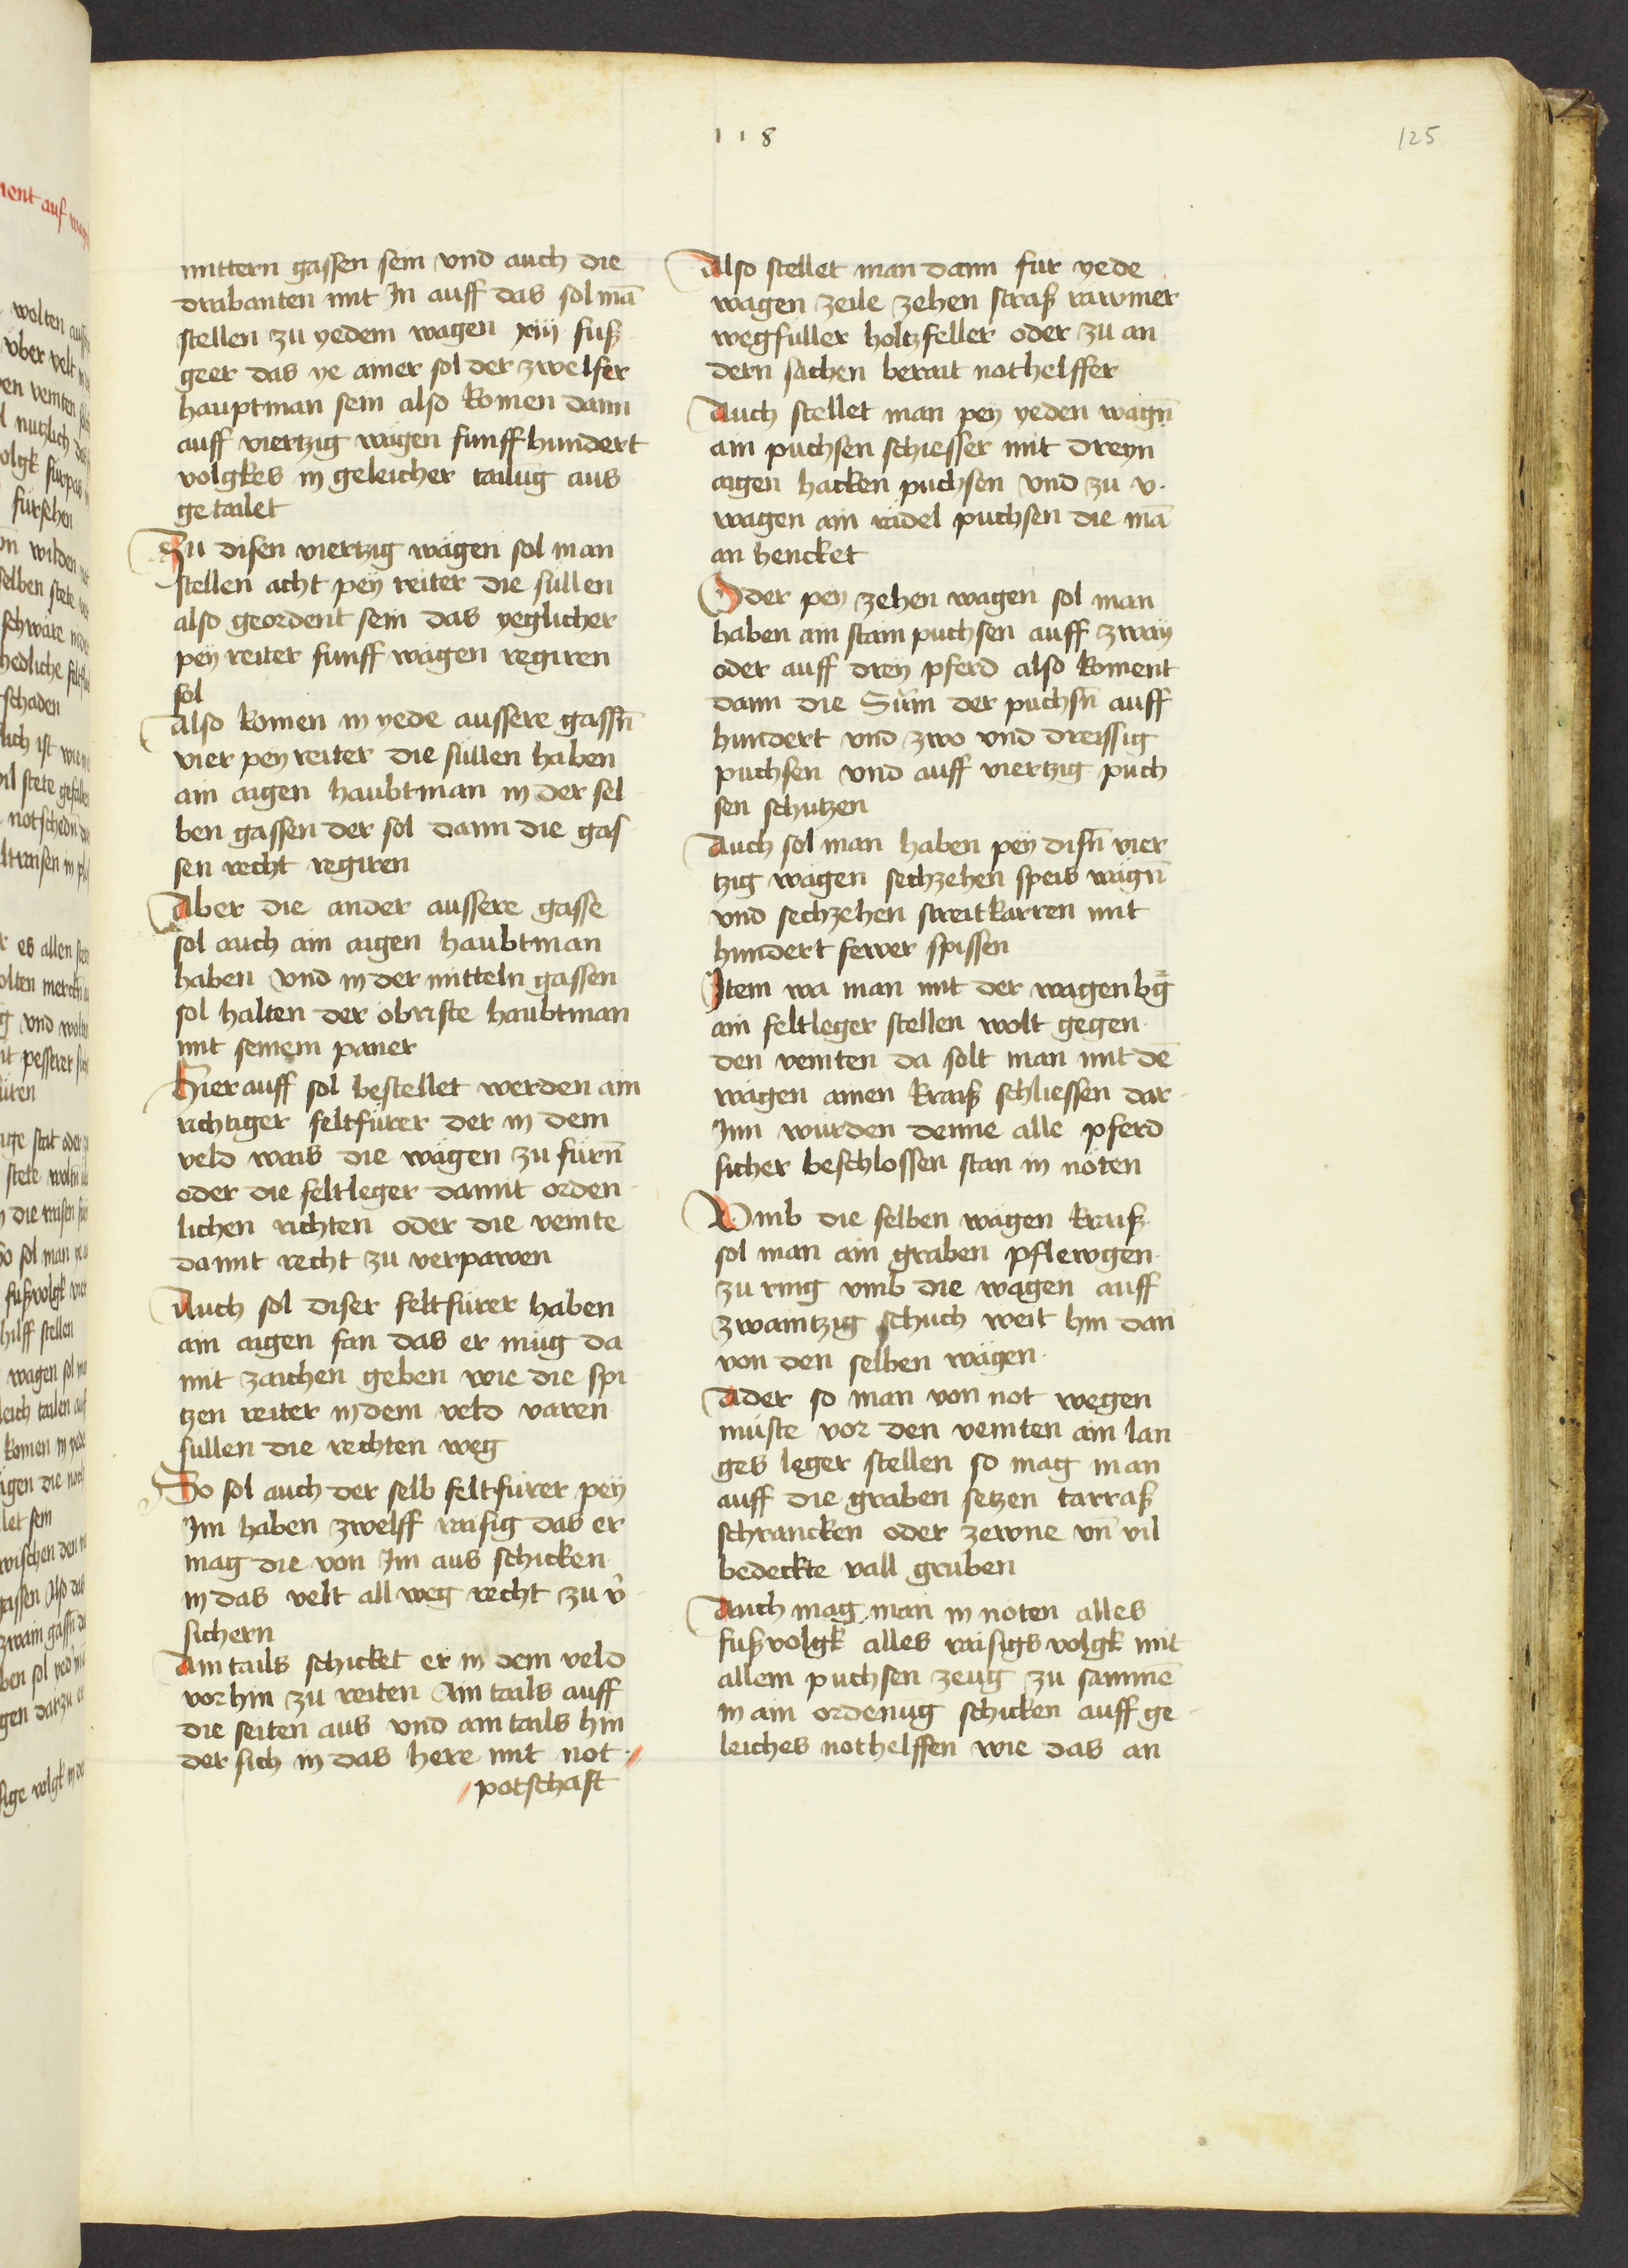 118
125
mittern gassen sein vnd auch die
drabanten mit Jn auff das sol mā
stellen zu yedem wagen xiij fuß
geer das ye ainer sol der zwelfer
hauptman sein also komen dann
auff viertzig wägen funff hundert
volgkes in geleicher tailūg aus
getailet
Zu disen viertzig wägen sol man
stellen acht peÿ reiter die süllen
also geordent sein das yeglicher
peÿ reiter funff wägen regiren
sol
Also komen in yede aussere gassn̄
vier peÿ reiter die süllen haben
ain aigen haubtman in der sel
ben gassen der sol dann die gas
sen recht regiren
Aber die ander aussere gasse
sol auch ain aigen haubtman
haben vnd in der mitteln gassen
sol halten der öbriste haubtman
mit seinem paner
Hierauff sol bestellet werden ain
richtiger feltfürer der in dem
veld wais die wägen zu fürn̄
oder die feltleger damit orden
lichen richten oder die veinte
damit recht zu verpawen
Auch sol diser feltfürer haben
ain aigen fan das er müg da
mit zaichen geben wie die spi
tzen reiter in dem veld varen
süllen die rechten weg
So sol auch der selb feltfürer peÿ
Jm haben zwelff raisig das er
mag die von Jm aus schicken
in das velt all weg recht zu v̄
sichern
Ain tails schicket er in dem veld
vorhin zu reiten Ain tails auff
die seiten aus vnd ain tails hin
der sich in das here mit not
potschaft
Also stellet man dann für yede
wagen zeile zehen straß rawmer
wegfüller holtzfeller oder zu an
dern sachen berait nothelffer
Auch stellet man peÿ yeden wagn̄
ain puchsen schiesser mit dreyn
aigen hacken puchsen vnd zu v.
wagen ain rädel puchsen die mā
an hencket
Oder peÿ zehen wagen sol man
haben ain stain puchsen auff zwaÿ
oder auff dreÿ pferd also koment
dann die Sūm der puchsn̄ auff
hundert vnd zwo vnd dreissig
puchsen vnd auff viertzig puch
sen schutzen
Auch sol man haben peÿ disn̄ vier
tzig wägen sechzehen speis wägn̄
vnd sechzehen streitkarren mit
hundert fewer spissen
Jtem wa man mit der wagenbḡ
ain feltleger stellen wolt gegen
den veinten da solt man mit dē
wägen ainen kraiß schliessen dar
Jnn würden denne alle pferd
sicher beschlossen stan in nöten
Vmb die selben wägen kraiß
sol man ain graben pflewgen
zu ring vmb die wägen auff
zwaintzig schuch weit hin dan̄
von den selben wägen
Ader so man von not wegen
müste vor den veinten ain lan
ges leger stellen so mag man
auff die graben setzen tarraß
schrancken oder zewne vn̄ vil
bedeckte vall gruben
Auch mag man in nöten alles
fußvolgk alles raisigs volgk mit
allem puchsen zeug zu sammē
in ain ordenūg schicken auff ge
leiches nothelffen wie das an